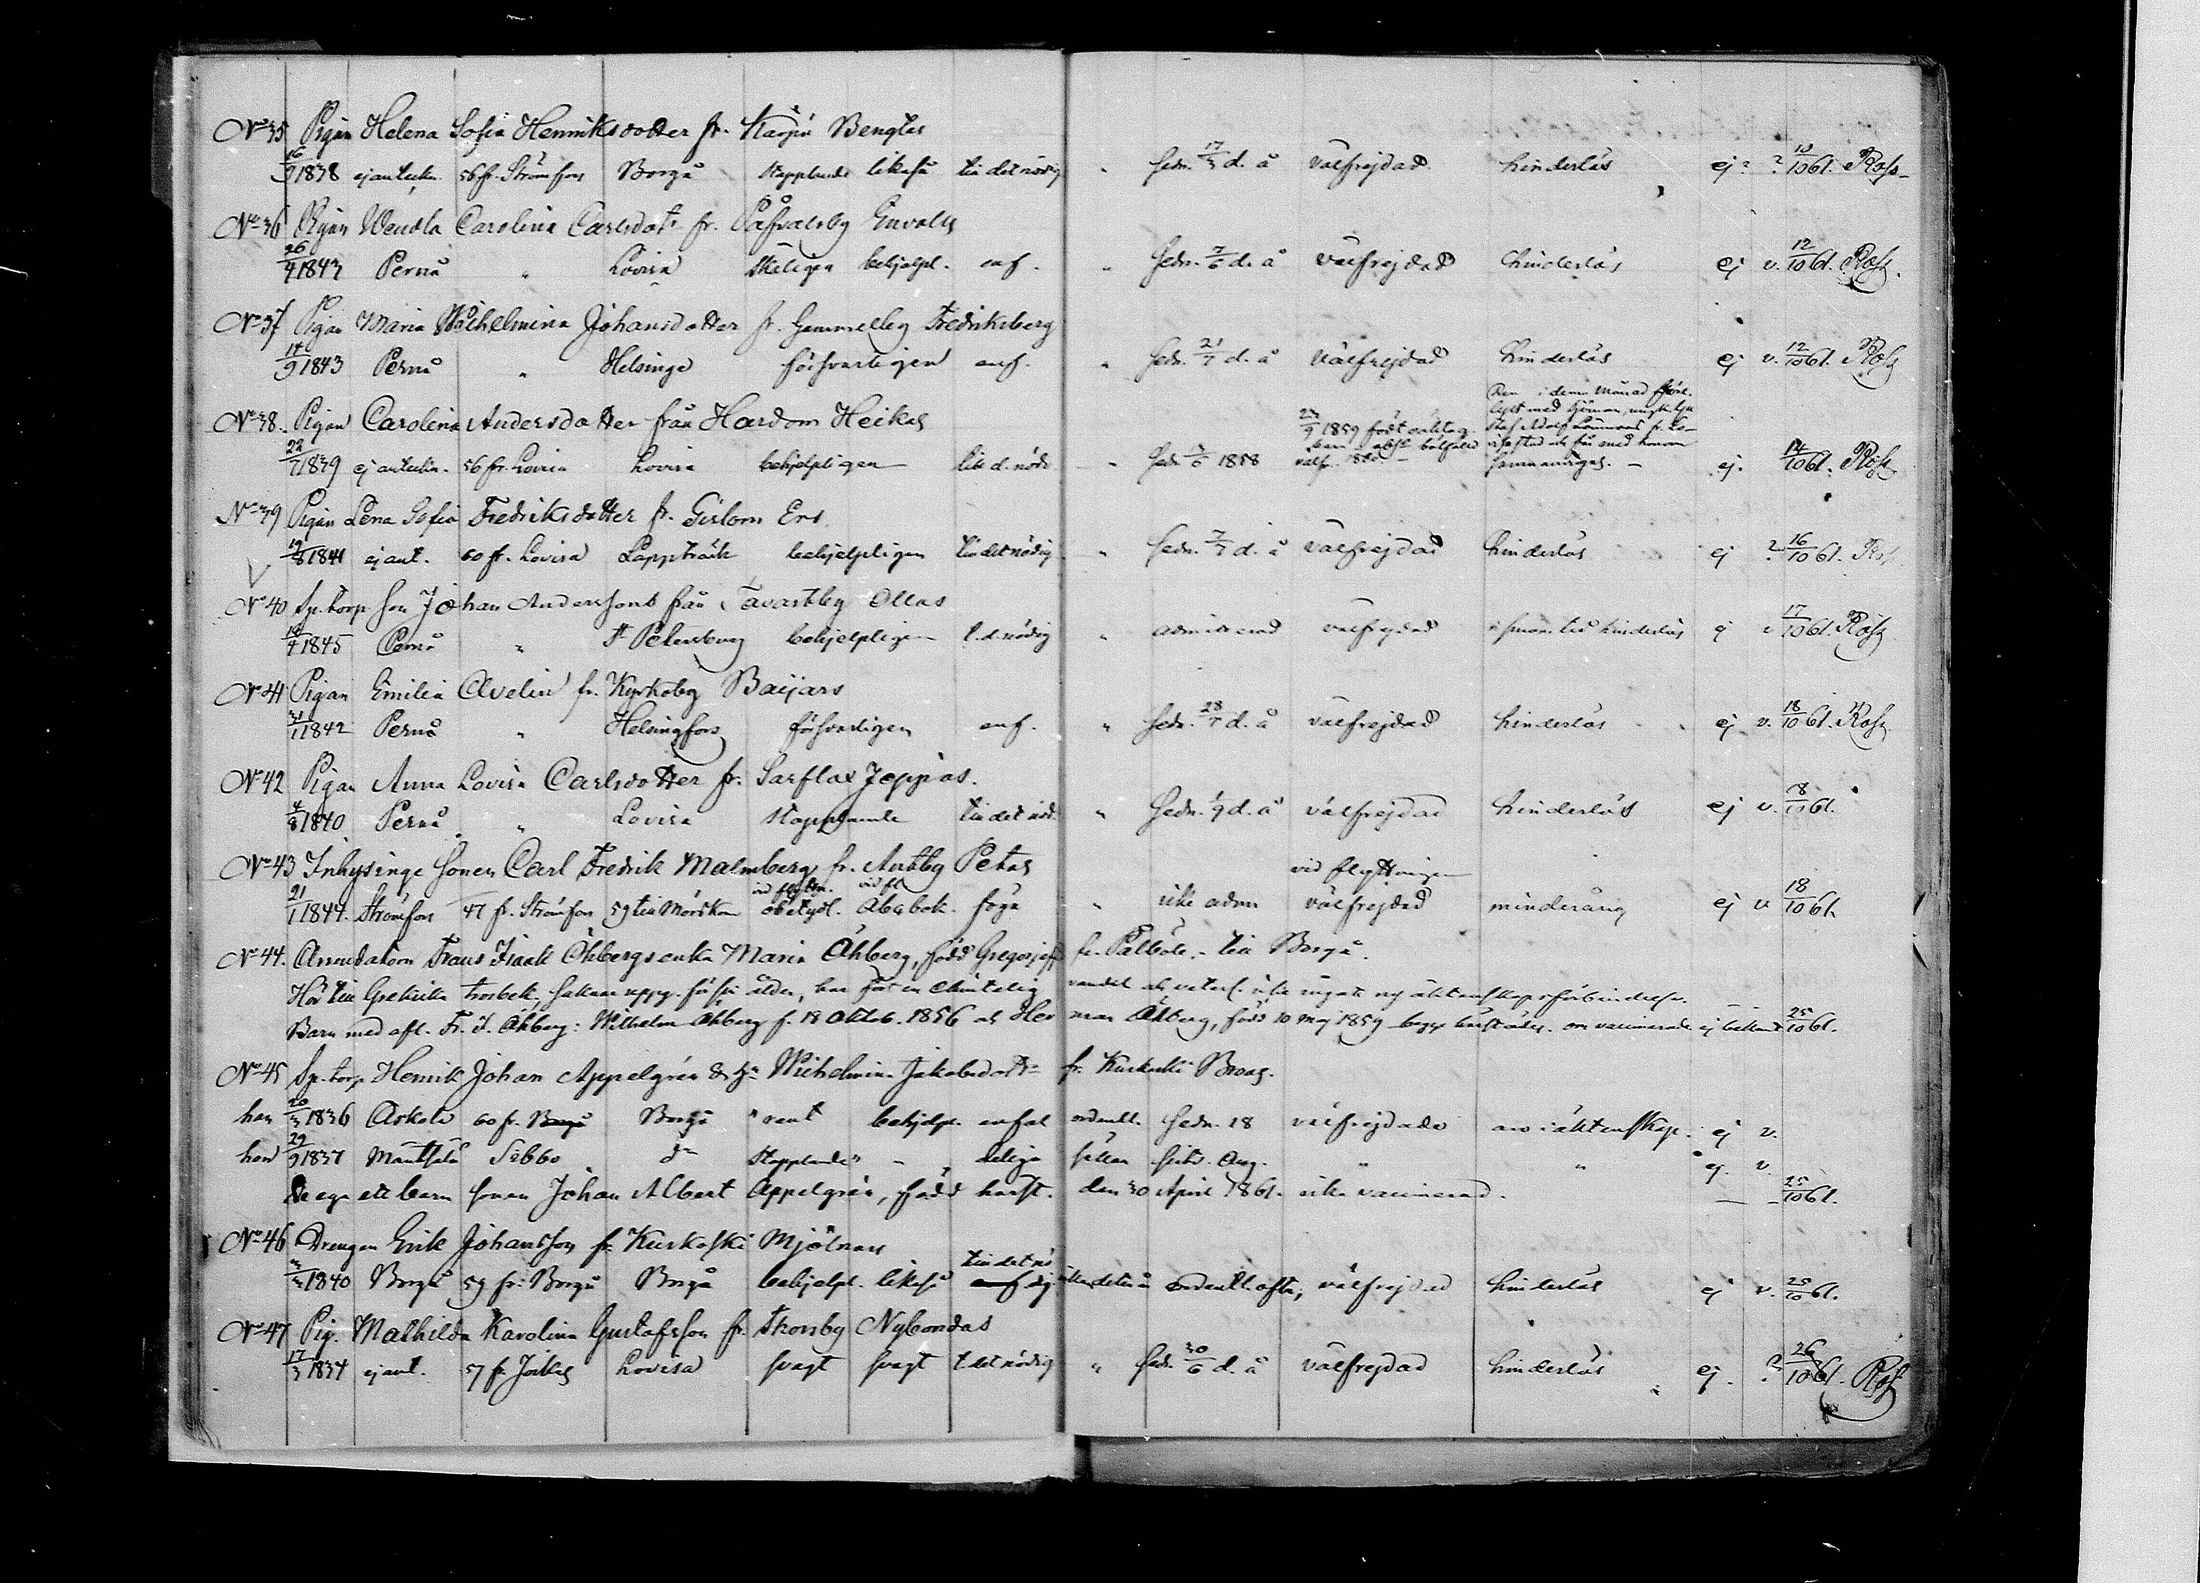 No 35 Pigan Helena Sofia Henriksdotter fr. Bengtes
16/9 1838 ej anteckn. 56 fr. Strömfors Borgå stapplande likaså till det nödig " sedn. 17/3 d. å välfrejdad hinderlös ej ? ? 10/10 61. Rosz
No 36 Pigan Wendla Carolina Carlsdotr fr. Såfvalsby Envalls
26/4 1843 Pernå " Lovisa skäligen behjelpl. enf. " sedn. 7/6 d. å välfrejdad hinderlös ej v. 12/10 61. Rosz
No 37 Pigan Maria Wilhelmina Johansdotter fr. Gammelby Fredriksberg
14/9 1843 Pernå " Helsinge försvarligen enf. " sedn. 21/7 d. å välfrejdad hinderlös ej v. 12/10 61. Rosz
No 38. Pigan Carolina Andersdotter från Hardom Heikas
22/7 1839 ej anteckn. 56 fr. Lovisa Lovisa behjelpligen till d. nödi " sedn 1858 1859 födt oäkta barn välfr. 1860. i denna månad lyst med sjöman, Adolf fr. och får med honom sammanvigas. ej. 14/10 61. Rosz
No 39 Pigan Lena Sofia Fredriksdotter fr. Gislom Ers
19/8 1841 ej ant. 60 fr. Lovisa Lappträsk behjelpligen till det nödig " sedn. 7/7 d. å välfrejdad hinderlös ej ? 16/10 61. Rosz
No 40 Sp. torp. son Johan Andersson från Tavastby Ollas
18/4 1845 Pernå " St Petersburg behjelpligen t. d. nödig " admitterad välfrejdad hinderlös ej v 17/10 61. Rosz
No 41 Pigan Emilia Avelin fr. Kyrkoby Baijars
31/1 1842 Pernå " Helsingfors försvarligen enf. " sedn. 28/7 d. å välfrejdad hinderlös ej v. 18/10 61. Rosz
No 42 Pigan Anna Lovisa Carlsdotter fr. Sarflax Jeppas.
4/8 1840 Pernå " Lovisa stapplande till det nöd. " sedn. 1/9 d. å välfrejdad hinderlös ej v. 18/10 61.
No 43 Inhysinge sonen Carl Fredrik Malmberg fr. Antby Petas
21/1 1844. Strömfors 47 fr. Strömfors 59 till Mörskom vid flyttn. obetydl. vid fl. Abc bok. föga " icke adm vid flyttningen välfrejdad minderårig ej v 18/10 61.
No 44. Arrendatorn Frans Isaak Öhbergs enka Maria Öhberg, född Gregorjeff fr. Pålböle. - till Borgå.
Hör till Grekiska trosbek., saknar uppg. för sin ålder, har fört en christelig vandel och veterl. icke ingått ny äktenskapsförbindelse.
Barn med afl. Fr. I. Öhberg: Wilhelm Öhberg f. 18 Oktob. 1856 och Herman Öhberg, född 10 Maj 1859 om vaccinerade ej bekant 25/10 61.
No 45 Sp. torp. Henrik Johan Appelgrén & h. Wilhelmina Jakobsdottr fr. Kuskoski Broas.
han 20/3 1836 Askola 60 fr. Borgå Borgå rent behjelpl. enfal ordentl. sedn. 18 välfrejdade äro i äktenskap. ej v.
hon 29/9 1837 Mäntsälä Sibbo do stapplande " deliga sällan sistl. Aug. " " ej v.
De ega ett barn sonen Johan Albert Appelgrén, född härst. den 30 April 1861. icke vaccinerad. 25/10 61.
No 46 Drengen Erik Johansson fr. Kuskoski Mjölnars
3/3 1840 Borgå 59 fr. Borgå Borgå behjelpl. likaså till det nödig ordentl. ofta, välfrejdad hinderlös ej v. 25/10 61.
No 47 Pig. Mathilda Karolina Gustafsson fr. Skorsby Nybondas
17/3 1834 ej ant. 57 fr. Lovisa svagt svagt t. det nödig " sedn. 30/6 d. å välfrejdad hinderlös ej. ? 26/10 61. Rosz